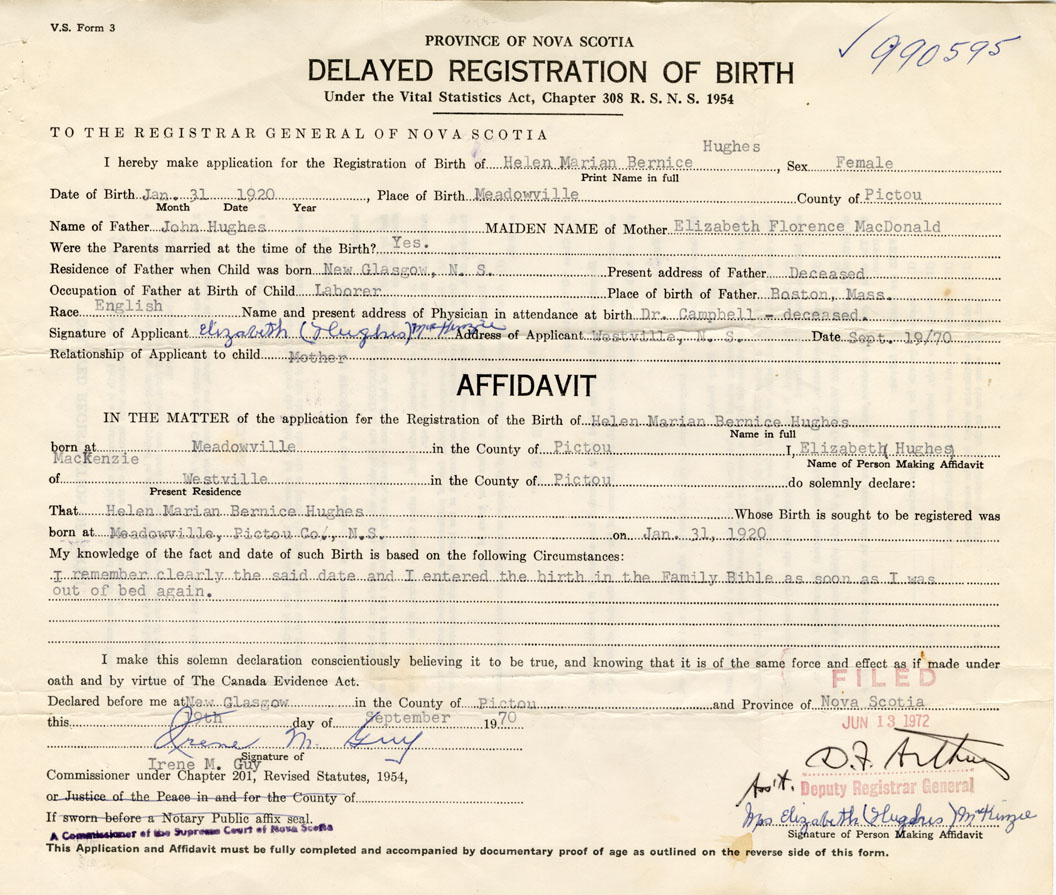 V.S. Form 3
✓ 990595
PROVINCE OF NOVA SCOTIA
DELAYED REGISTRATION OF BIRTH
Under the Vital Statistics Act, Chapter 308 R. S. N. S. 1954
TO THE REGISTRAR GENERAL OF NOVA SCOTIA
Hughes
I hereby make application for the Registration of Birth of Helen Marian Bernice, Sex Female
Print Name in full
Date of Birth Jan. 31 1920, Place of Birth Meadowville County of Pictou
Month Date Year
Name of Father John Hughes MAIDEN NAME of Mother Elizabeth Florence MacDonald
Were the Parents married at the time of the Birth? Yes.
Residence of Father when Child was born New Glasgow, N. S. Present address of Father Deceased
Occupation of Father at Birth of Child Laborer Place of birth of Father Boston, Mass.
Race English Name and present address of Physician in attendance at birth Dr. Campbell - deceased.
Signature of Applicant Elizabeth (Hughes) McKinzie Address of Applicant Westville, N. S. Date Sept. 19/70
Relationship of Applicant to child Mother
AFFIDAVIT
IN THE MATTER of the application for the Registration of the Birth of Helen Marian Bernice Hughes
Name in full
born at Meadowville in the County of Pictou I, Elizabeth( Hughes)
MacKenzie Name of Person Making Affidavit
of Westville in the County of Pictou do solemnly declare:
Present Residence
That Helen Marian Bernice Hughes Whose Birth is sought to be registered was
born at Meadowville, Pictou Co/, N.S. on Jan. 31, 1920
My knowledge of the fact and date of such Birth is based on the following Circumstances:
I remember clearly the said date and I entered the birth in the Family Bible as soon as I was
out of bed again.
I make this solemn declaration conscientiously believing it to be true, and knowing that it is of the same force and effect as if made under
oath and by virtue of The Canada Evidence Act.
FILED
Declared before me at New Glasgow in the County of Pictou and Province of Nova Scotia
this day of September 1970
JUN 13 1972
Irene M. Guy
Signature of
Irene M. Guy
D.F. Arthur
Commissioner under Chapter 201, Revised Statutes, 1954,
Ass't. Deputy Registrar General
or Justice of the Peace in and for the County of
Mrs Elizabeth (Hughes) McKinzie
If sworn before a Notary Public affix seal.
A Commissioner of the Supreme Court of Nova Scotia
Signature of Person Making Affidavit
This Application and Affidavit must be fully completed and accompanied by documentary proof of age as outlined on the reverse side of this form.